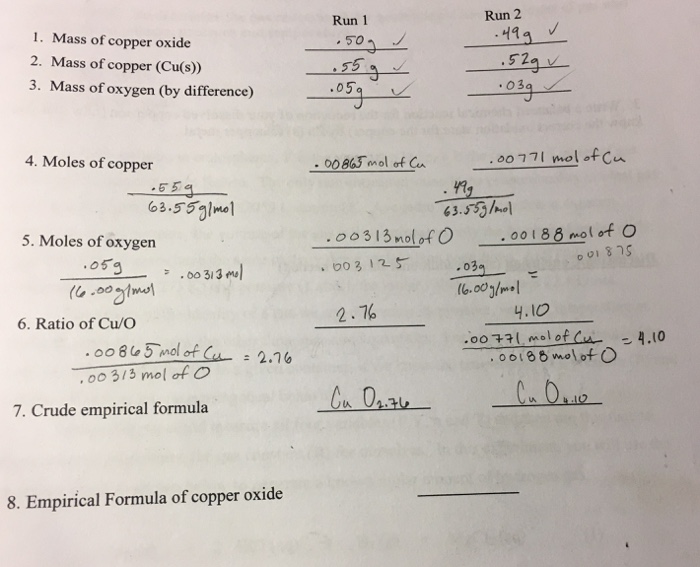 Run 1 Run 2
1. Mass of copper oxide .50g ✓ .49g ✓
2. Mass of copper (Cu(s)) .55g ✓ .52g ✓
3. Mass of oxygen (by difference) .05g ✓ .03g ✓
4. Moles of copper .00865 mol of Cu .00771 mol of Cu
.55g .49g
63.55g/mol 63.55g/mol
5. Moles of oxygen .00313 mol of O .00188 mol of O
.05g = .00313 mol .003125 .03g = 001875
16.00g/mol 16.00g/mol
6. Ratio of Cu/O 2.76 4.10
.00865 mol of Cu = 2.76 .00771 mol of Cu = 4.10
.00313 mol of O .00188 mol of O
7. Crude empirical formula Cu O2.76 Cu O4.10
8. Empirical Formula of copper oxide